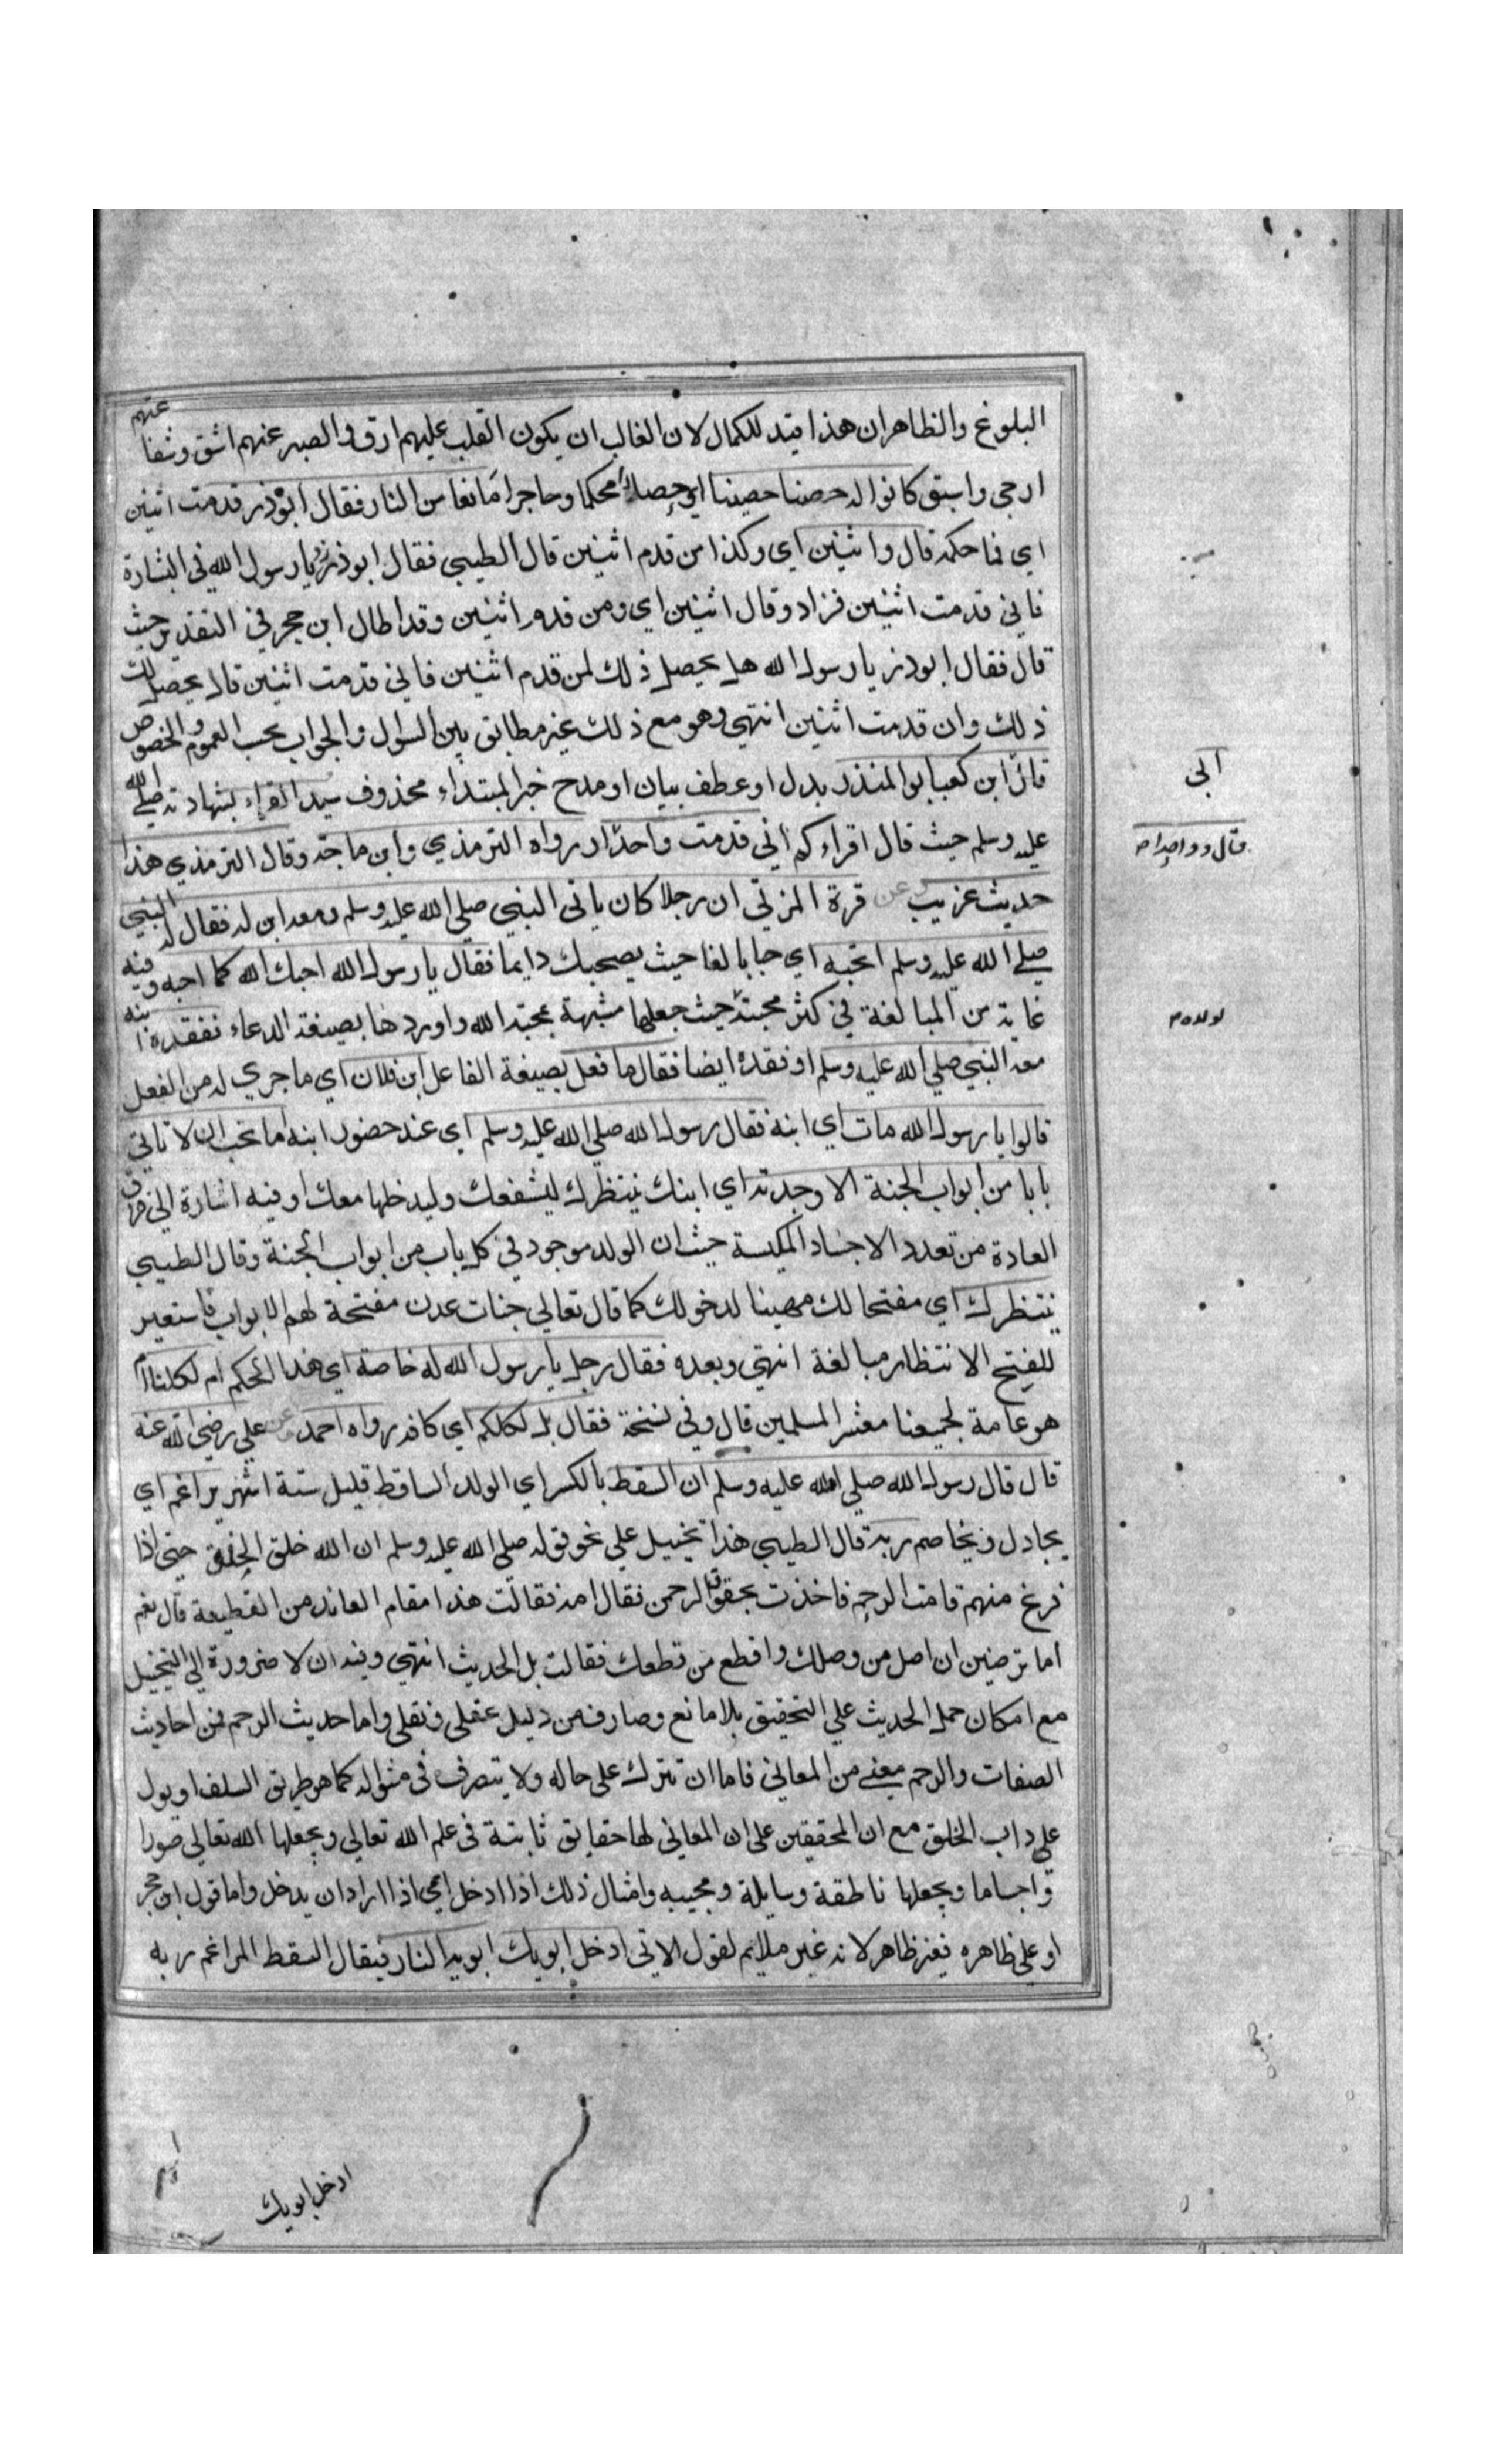 البلوغ والظاهر ان هذا قيد للكمال لان الغالب ان يكون القلب عليهم ارق والصبر عنهم اشق وشفا عتهم
ارجى واسبق كانوا له حصنا حصينا اي حصارا محكما وحاجرا مانعا من النار فقال ابو ذر قدمت اثنين
اي فما حكمه قال واثنين اي وكذا من قدم اثنين قال الطيبي فقال ابو ذر زد يا رسول الله في البشارة
فاني قدمت اثنين فزاد وقال اثنين اي ومن قدم اثنين وقد اطال ابن حجر في التقدير حيث
قال فقال ابو ذر يا رسول الله هل يحصل ذلك لمن قدم اثنين فاني قدمت اثنين قال يحصل لك
ذلك وان قدمت اثنين انتهي وهو مع ذلك غير مطابق بين السوال والجواب بحسب العموم والخصوص
قال ابن كعب ابو المنذر بدل او عطف بيان او مدح خبر المبتداء محذوف سيد القراء بشهادته صلي الله
عليه وسلم حيث قال اقراءكم اني قدمت واحدا رواه الترمذي وابن ماجة وقال الترمذي هذا
حديث غريب وعن قرة المزني ان رجلا كان ياتي النبي صلي الله عليه وسلم ومعه ابن له فقال له النبي
صلي الله عليه وسلم اتحبه اي حبا بالغا حيث يصحبك دايما فقال يا رسول الله احبك الله كما احبه وفيه
غاية من المبالغة في كثر محبته حيث جعلها مشبهة بمحبة الله واوردها بصيغة الدعاء ففقده ابنه
معه النبي صلي الله عليه وسلم او فقده ايضا فقال ما فعل بصيغة الفاعل ابن فلان اي ما جري له من الفعل
قالوا يا رسول الله مات اي ابنه فقال رسول الله صلي الله عليه وسلم اي عند حضور ابنه اما تحب ان لا تاتي
بابا من ابواب الجنة الا وجدته اي ابنك ينتظرك ليشفعك وليدخلها معك وفيه اشارة الى خرق
العادة من تعدد الاجساد المكتسبة حيث ان الولد موجود في كل باب من ابواب الجنة وقال الطيبي
ينتظرك اي مفتحا لك مهيئا لدخولك كما قال تعالي جنات عدن مفتحة لهم الابواب فاستعير
للفتح الانتظار مبالغة انتهي وبعده فقال رجل يا رسول الله له خاصة اي هذا الحكم ام لكلنا ام
هو عامة لجميعنا معشر المسلمين قال وفي نسخة فقال بل لكلكم اي كافة رواه احمد وعن علي رضي الله عنه
قال قال رسول الله صلي الله عليه وسلم ان السقط بالكسر اي الولد الساقط قبل ستة اشهر يراغم اي
يجادل ويخاصم ربه قال الطيبي هذا تخييل علي نحو قوله صلي الله عليه وسلم ان الله خلق الخلق حتى اذا
فرغ منهم قامت الرحم فاخذت بحقو الرحمن فقال مه فقالت هذا مقام العائذ من القطيعة قال نعم
اما ترضين ان اصل من وصلك واقطع من قطعك فقالت بل الحديث انتهي وفيه ان لا ضرورة الي التخييل
مع امكان حمل الحديث علي التحقيق بلا مانع وصارف من دليل عقلي ونقلي واما حديث الرحم فمن احاديث
الصفات والرحم معنى من المعاني فاما ان تترك على حاله ولا يتصرف في منواله كما هو طريق السلف او يول
على داب الخلق مع ان المحققين على ان المعاني لها حقايق ثابتة في علم الله تعالي ويجعلها الله تعالي صورا
واجساما ويجعلها ناطقة وسايلة ومجيبه وامثال ذلك اذا ادخل اي اذا اراد ان يدخل واما قول ابن حجر
او على ظاهره فغير ظاهر لانه غير ملايم لقول الاتي ادخل ابويك ابويه النار فيقال السقط المراغم ربه
ابي
قال وواحدا
لولده
ادخل ابويك